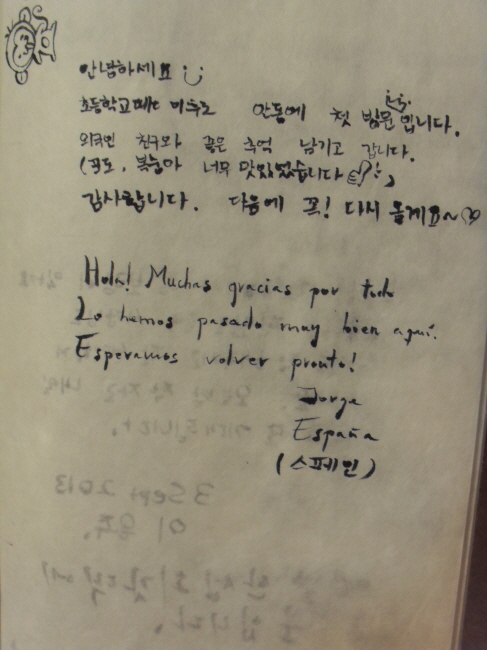 안녕하세요
초등학교때 이후로 안동에 첫 방문 입니다.
외국인 친구와 좋은 추억 남기고 갑니다.
(포도, 복숭아 너무 맛있었습니다)
감사합니다. 다음에 꼭! 다시 올게요~
Hola! Muchas gracias por todo
Lo hemos pasado muy bien aquí.
Esperamos volver pronto!
Jorge
España
(스페인)
3 Sept 2013